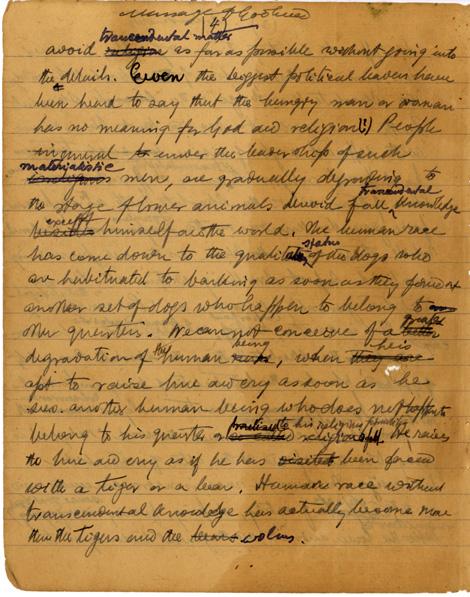 Message of Godhead
4
transcendental matter
avoid religion as far as possible without going into
the details. Even the biggest political leaders have
been heard to say that the hungry man or woman
has no meaning for God and religion(!) People
in general under the leadership of such
materialistic
men, are gradually degrading to
transcendental
the stage of lower animals devoid of all knowledge
except
besides himself and the world. The human race
status
has come down to the of the dogs who
are habituated to barking as soon as they
another set of dogs who happen to belong to
other quarters. We can not conceive of a
greater
being he is
degradation of the human race, when they are
apt to raise hue and cry as soon as he
sees another human being who does not happen to
to his religious
belong to his quarter or religion He raises
the hue and cry as if he has visited been faced
with a tiger or a bear. Human race without
transcendental knowledge has actually become more
than the tigers and the bears